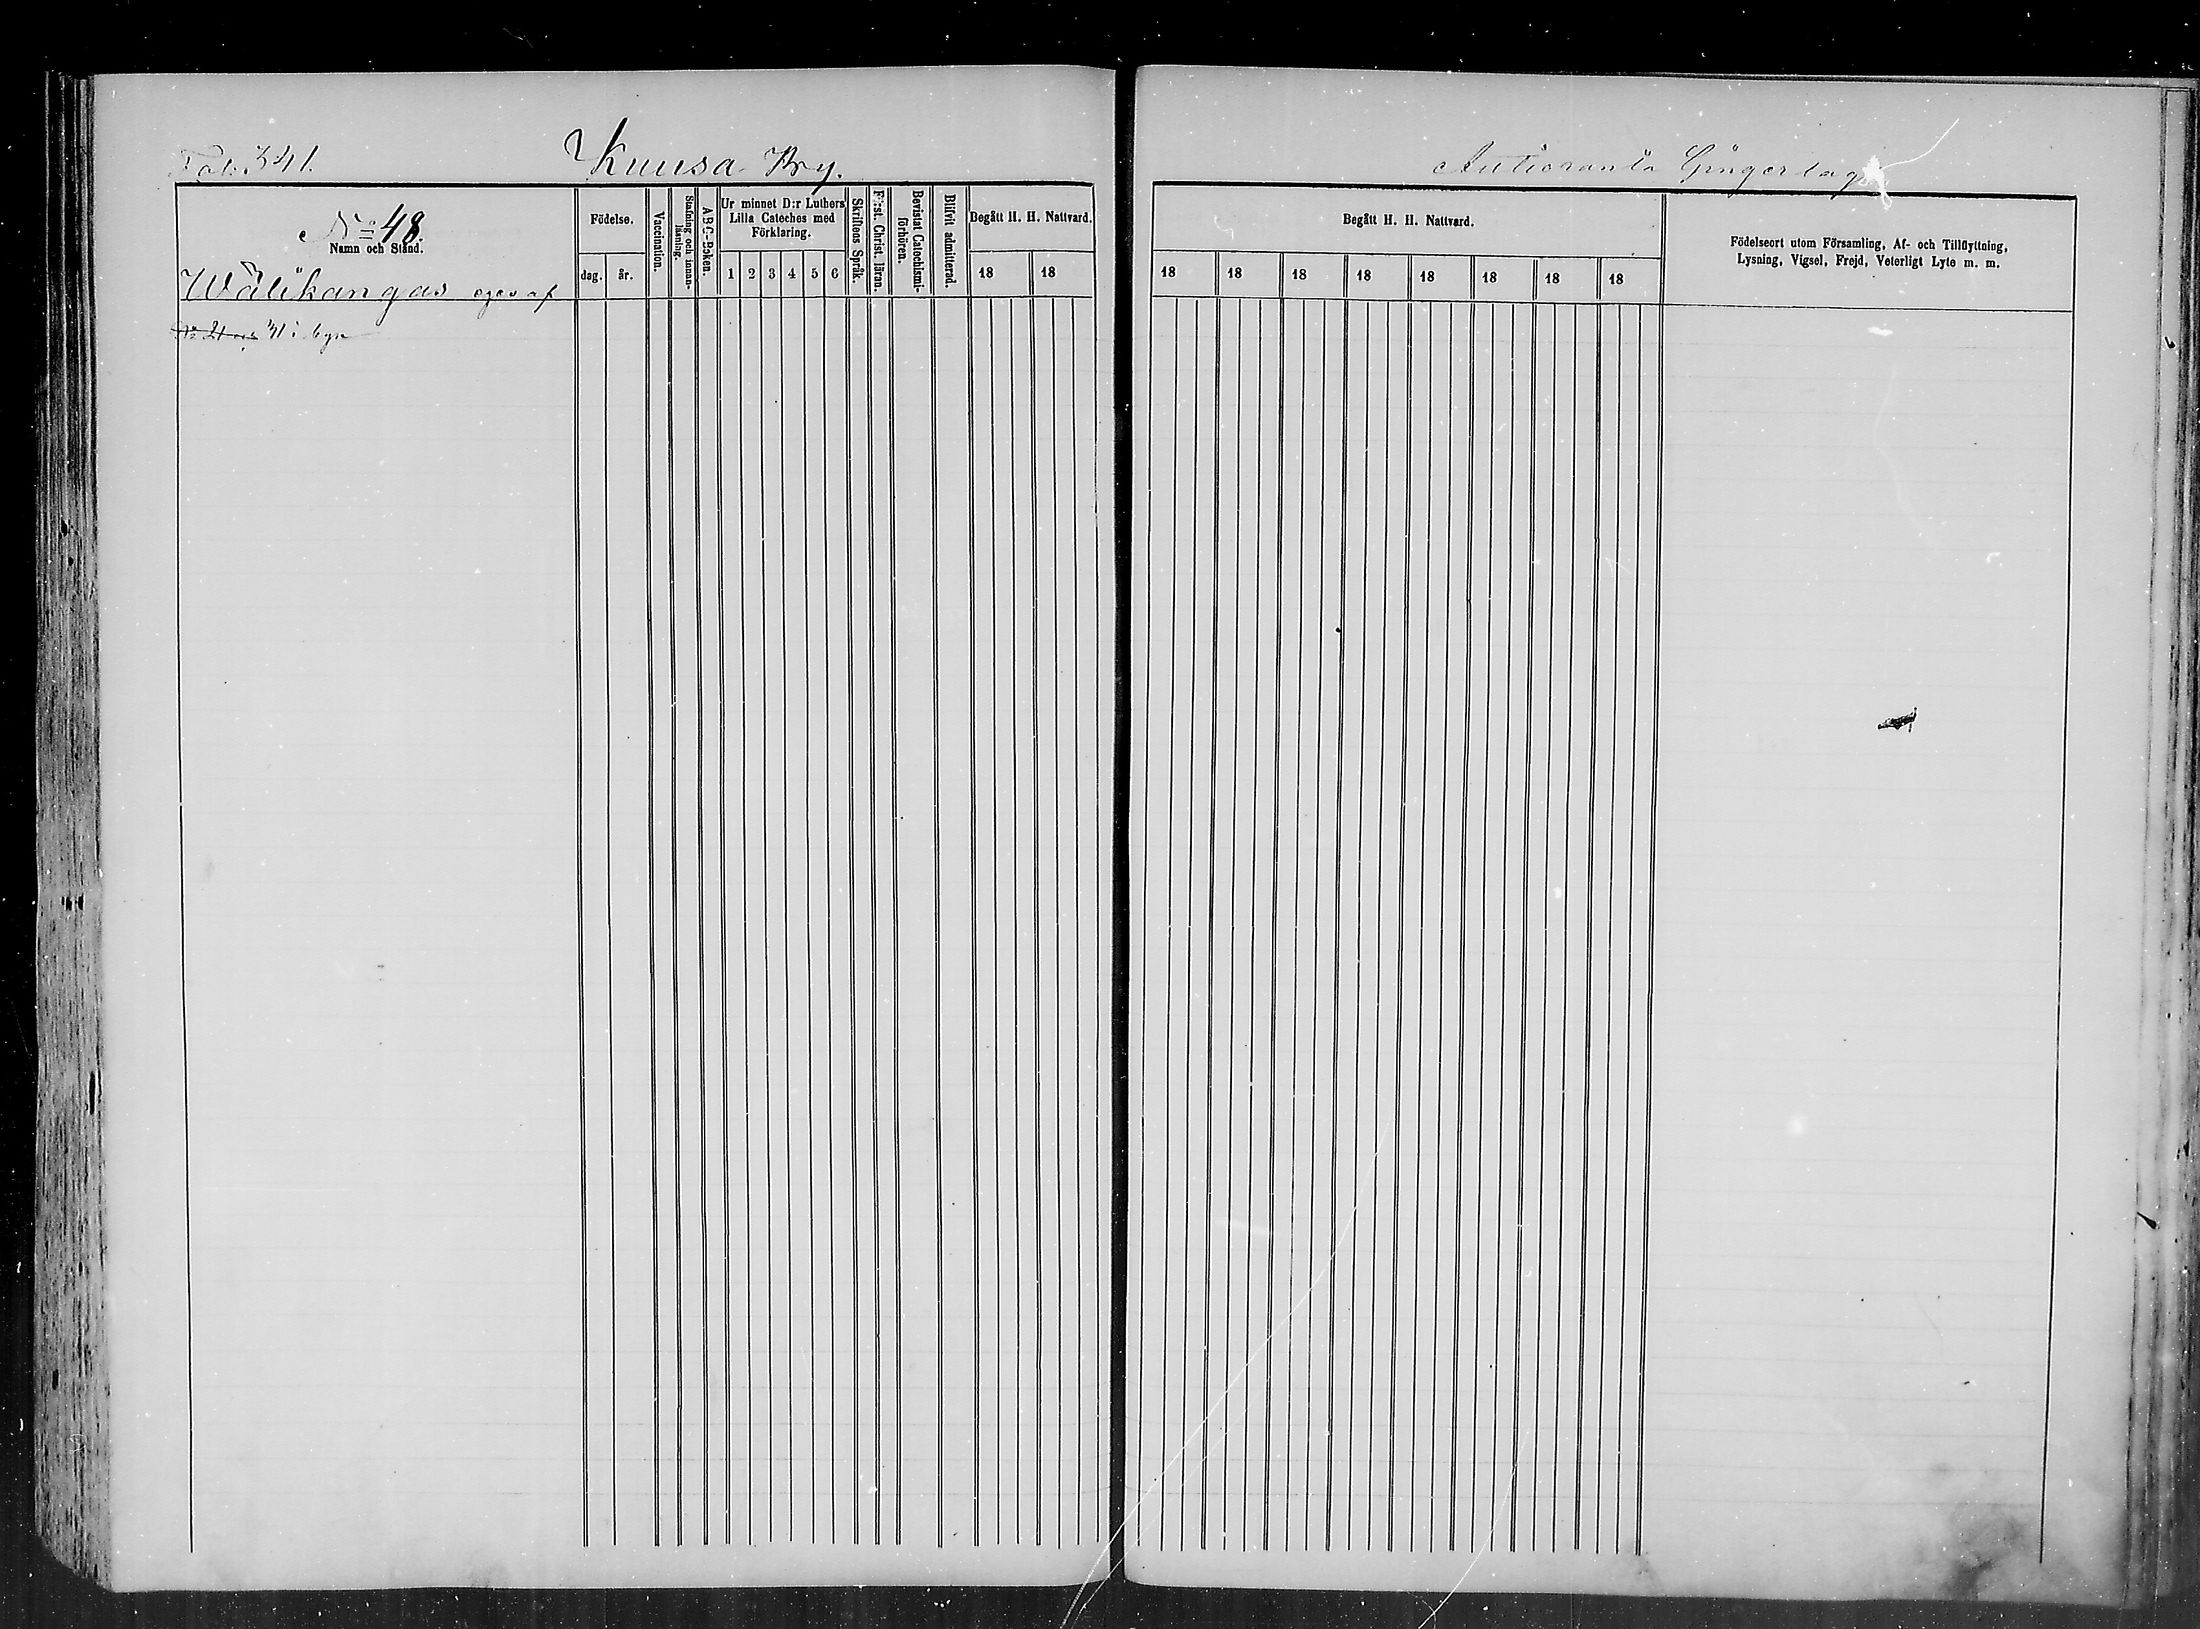 Fol. 341.
Kuusa By.
N:o 48.
Namn och Stånd.
Födelse.
dag. år.
Vaccination.
Stafning och innanläsning.
ABC-Boken.
Ur minnet D:r Luthers
Lilla Cateches med
Förklaring.
1 2 3 4 5 6
Skriftens Språk.
Först. Christ. läran.
Bevistat Catechismi-
förhören.
Blifvit admitterad.
Begått H. H. Nattvard.
18 18
Wälikangas eges af
31 i byn
Autioranta Gingerlag
Begått H. H. Nattvard.
18 18 18 18 18 18 18 18
Födelseort utom Församling, Af- och Tillflyttning,
Lysning, Vigsel, Frejd, Veterligt Lyte m. m.